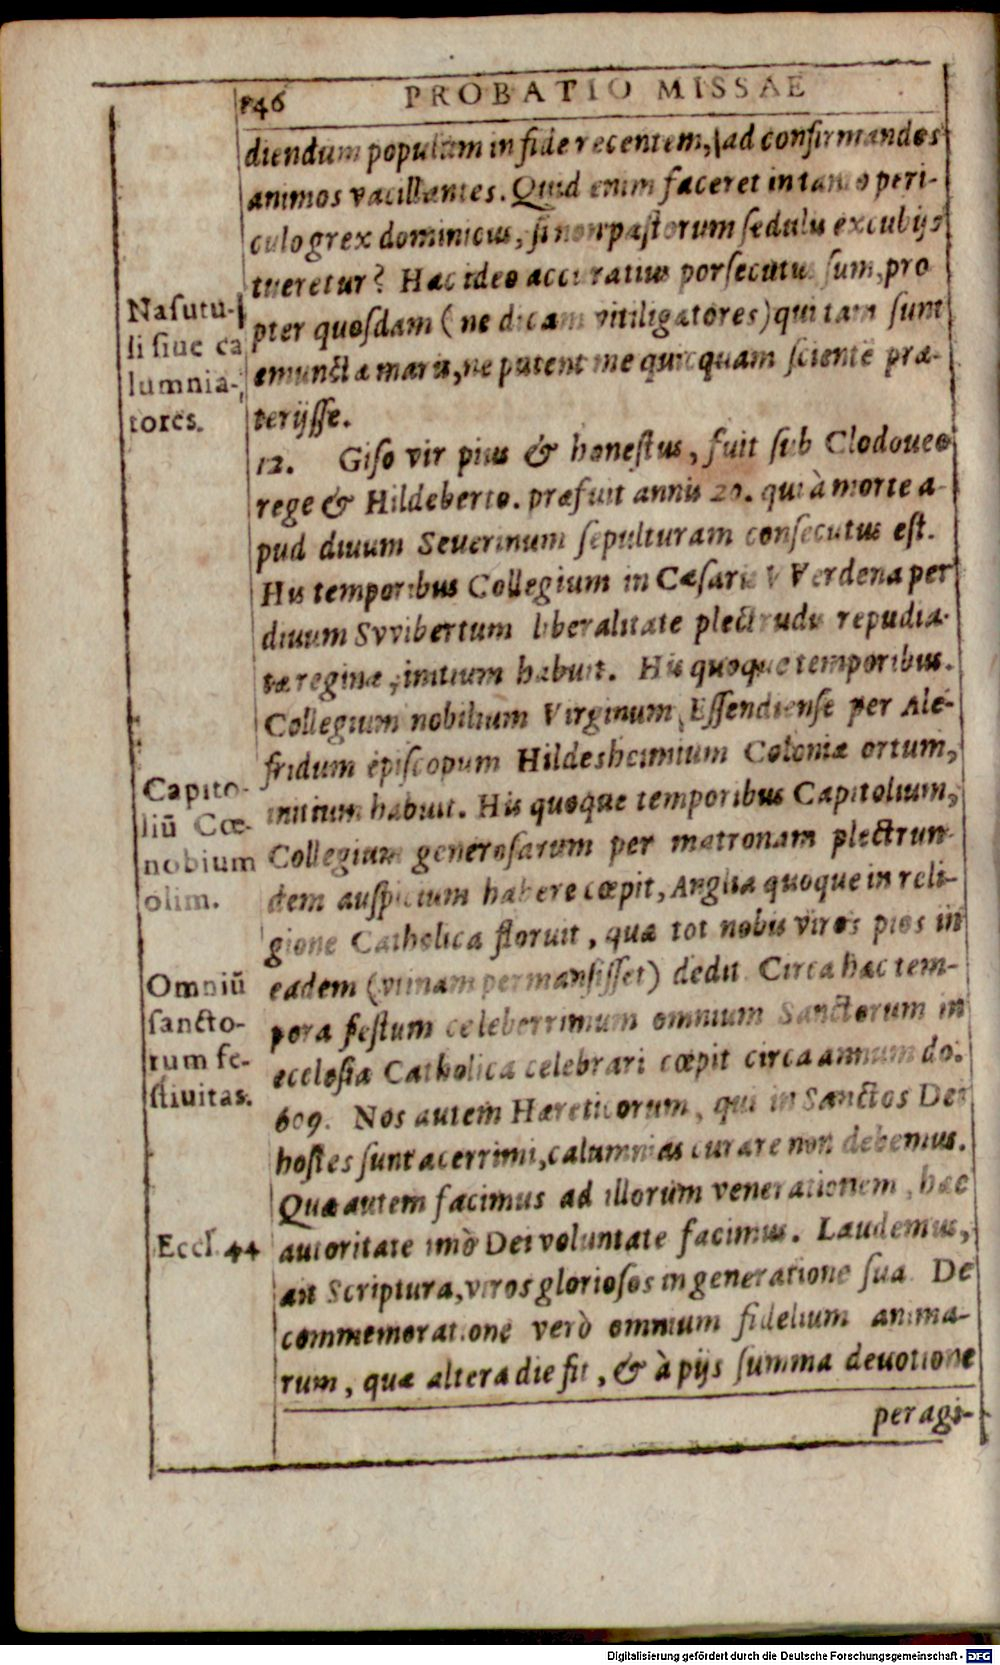 146
PROBATIO MISSAE
diendum populum in fide recentem, ad confirmandos
animos vacillantes. Quid enim faceret in tanto peri-
culo grex dominicus, si non pastorum sedulis excubijs
tueretur? Hac ideo accuratius porsecutus sum, pro
pter quosdam (ne dicam vitiligatores) qui tam sunt
emunctæ naris, ne putent me quicquam scientē præ-
terijsse.
Nasutu-
li siue ca
lumnia-
tores.
12. Giso vir pius & honestus, fuit sub Clodoueo
rege & Hildeberto. præfuit annis 20. qui à morte a-
pud diuum Seuerinum sepulturam consecutus est.
His temporibus Collegium in Cæsaris VVerdena per
diuum Svvibertum liberalitate plectrudis repudia-
tæ reginæ, initium habuit. His quoque temporibus.
Collegium nobilium Virginum Essendiense per Ale-
fridum episcopum Hildesheimium Coloniæ ortum,
initium habuit. His quoque temporibus Capitolium,
Collegium generosarum per matronam plectrun-
dem auspicium habere cœpit, Anglia quoque in reli-
gione Catholica floruit, quæ tot nobis viros pios in
eadem (vtinam permansisset) dedit. Circa hac tem-
pora festum celeberrimum omnium Sanctorum in
ecclesia Catholica celebrari cœpit circa annum do.
609. Nos autem Hæreticorum, qui in Sanctos Dei
hostes sunt acerrimi, calumnias curare non debemus.
Quæ autem facimus ad illorum venerationem, hac
autoritate imò Dei voluntate facimus. Laudemus,
ait Scriptura, viros gloriosos in generatione sua. De
commemoratione verò omnium fidelium anima-
rum, quæ altera die fit, & à pijs summa deuotione
peragi-
Capito-
liū Cœ-
nobium
olim.
Omniū
sancto-
rum fe-
stiuitas.
Eccl. 44
Digitalisierung gefördert durch die Deutsche Forschungsgemeinschaft - DFG